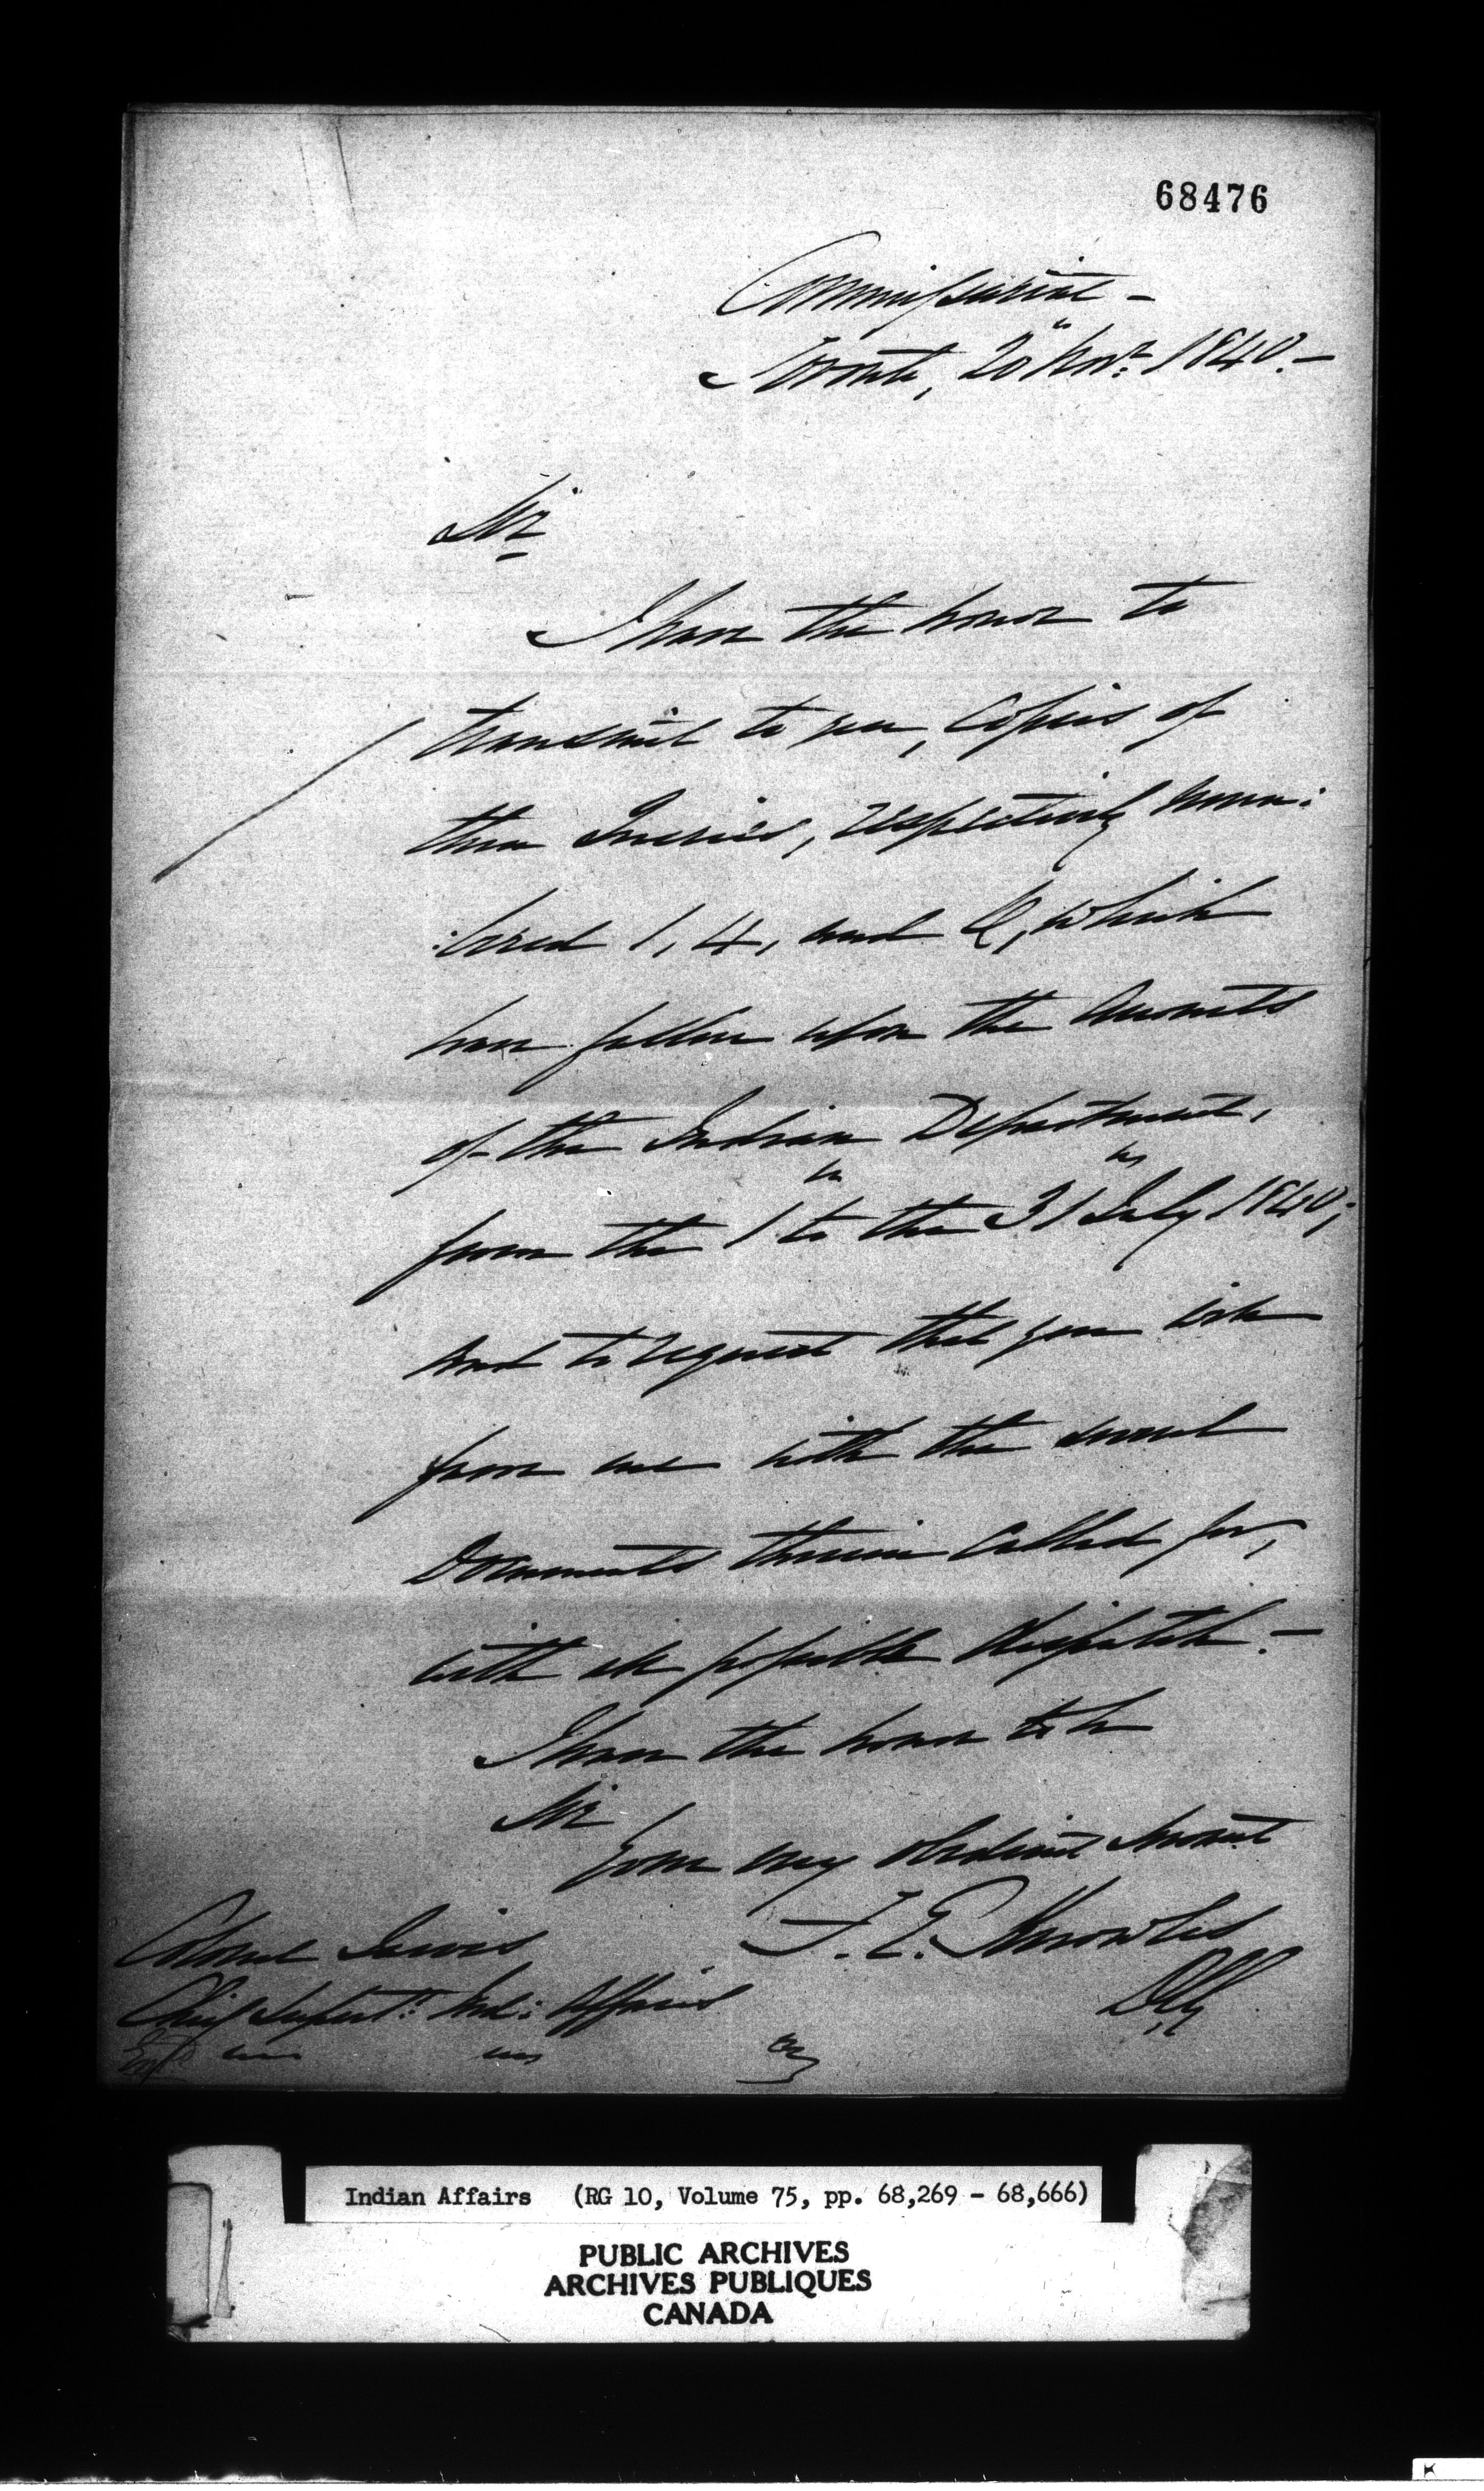 68476
Commissariat -
Toronto, 20 Novr. 1840. -
Sir
I have the honor to
transmit to you, Copies of
three Queries, respectively num:
:bered 1, 4, and 12, which
have fallen upon the Accounts
of the Indian Department,
from the 1 to the 31 July 1840;
and to request that you will
favor me with the several
Documents therein called for,
with all possible dispatch. -
I have the honor to be
Sir
Your very obedient Servant
F. E. Knowles
Colonel Jarvis
Chief Supert. Ind: Affairs
Indian Affairs (RG 10, Volume 75, pp. 68,269 - 68,666)
PUBLIC ARCHIVES
ARCHIVES PUBLIQUES
CANADA
K